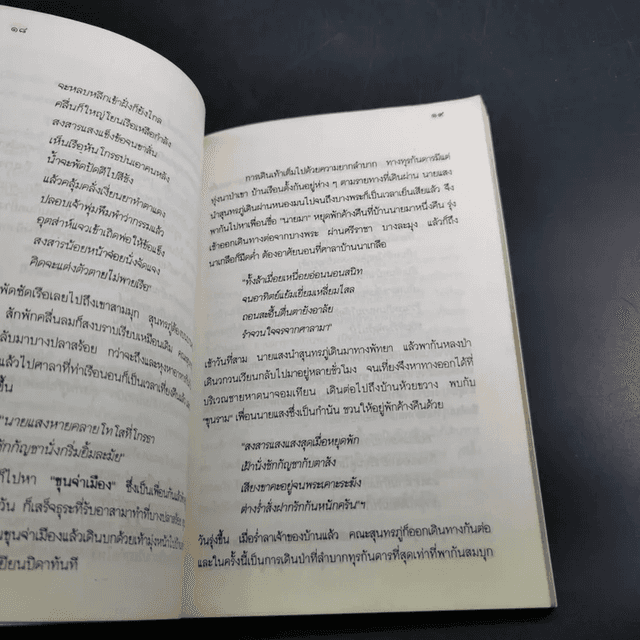 ๑๘
จะหลบหลีกเข้าฝั่งก็ยังไกล
คลื่นก็ใหญ่โยนเรือเหลือกำลัง
สงสารแสงแข็งข้อจนขาสั่น
เห็นเรือหันโกรธบ่นเอาคนหลัง
น้ำจะพัดปัดตีไปสีชัง
แล้วคลุ้มคลั่งเงี่ยนยาทำตาแดง
ปลอบเจ้าพุ่มพึมพำว่ากรรมแล้ว
อุตส่าห์แจวเข้าเถิดพ่อให้ข้อแข็ง
สงสารน้อยหน้าจ๋อยนั่งจัดแจง
คิดจะแต่งตัวตายไม่พายเรือ"
พัดซัดเรือเลยไปถึงเขาสามมุก สุนทรภู่ต้อง
สักพักคลื่นลมก็สงบราบเรียบเหมือนเดิม
ลับมาบางปลาสร้อย กว่าจะถึงและหุงหาอาหาร
แล้วไปศาลาที่ท่าเรือนอนก็เป็นเวลาเที่ยงคืนแล้ว
ขึ้น
"นายแสงหายคลายโทโสที่โกรธา
ชักกัญชานั่งกริ่มยิ้มละมัย"
ก็ไปหา "ขุนจ่าเมือง" ซึ่งเป็นเพื่อนกันแล้วพัก
วัน ก็เสร็จธุระที่รับอาสามาทำที่บางปลาสร้อย
นขุนจ่าเมืองแล้วเดินบกด้วยเท้ามุ่งหน้าไปบ้าน
ยียนบิดาทันที
๑๙
การเดินเท้าเต็มไปด้วยความยากลำบาก ทางทุรกันดารมีแต่
ทุ่งนาป่าเขา บ้านเรือนตั้งกันอยู่ห่าง ๆ ตามรายทางที่เดินผ่าน นายแสง
นำสุนทรภู่เดินผ่านหนองมนไปจนถึงบางพระก็เป็นเวลาเย็นเสียแล้ว จึง
พากันไปหาเพื่อนชื่อ "นายมา" หยุดพักค้างคืนที่บ้านนายมาหนึ่งคืน รุ่ง
เช้าออกเดินทางต่อจากบางพระ ผ่านศรีราชา บางละมุง แล้วก็ถึง
นาเกลือก็มืดค่ำ ต้องอาศัยนอนที่ศาลาบ้านนาเกลือ
"ทั้งล้าเมื่อยเหนื่อยอ่อนนอนสนิท
จนอาทิตย์แย้มเยี่ยมเหลี่ยมไศล
ถอนสะอื้นตื่นตายังอาลัย
รำจวนใจจรจากศาลามา"
เช้าวันที่สาม นายแสงนำสุนทรภู่เดินมาทางพัทยา แล้วพากันหลงป่า
เดินวกวนเวียนกลับไปมาอยู่หลายชั่วโมง จนเที่ยงจึงหาทางออกได้ที่
บริเวณชายหาดนาจอมเทียน เดินต่อไปถึงบ้านห้วยขวาง พบกับ
"ขุนราม" เพื่อนนายแสงซึ่งเป็นกำนัน ชวนให้อยู่พักค้างคืนด้วย
"สงสารแสงแสงสุดเมื่อหยุดพัก
เฝ้านั่งชักกัญชากับตาสัง
เสียงขาคะอยู่จนพระเคาะระฆัง
ต่างร่ำสั่งฝากรักกันหนักครัน"ฯ
วันรุ่งขึ้น เมื่อร่ำลาเจ้าของบ้านแล้ว คณะสุนทรภู่ก็ออกเดินทางกันต่อ
และในครั้งนี้เป็นการเดินป่าที่ลำบากทุรกันดารที่สุดเท่าที่พากันสมบุก